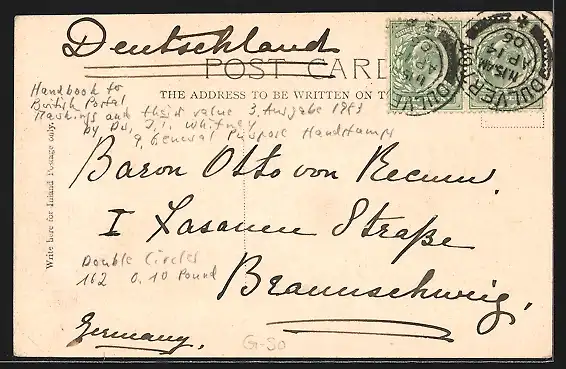 Deutschland
POST CARD
THE ADDRESS TO BE WRITTEN ON T
Handbook to
British Postal
Markings and their value 3. Ausgabe 1983
by Dr. J. T. Whitney
9. General Purpose Handstamps
Write here for Inland Postage only.
Baron Otto von Recum.
I Jasanen Straße
Double Circles
162 0.10 Pound
Braunschweig,
Germany.
G-50
DULVERTON
11.15AM
AP 14
06